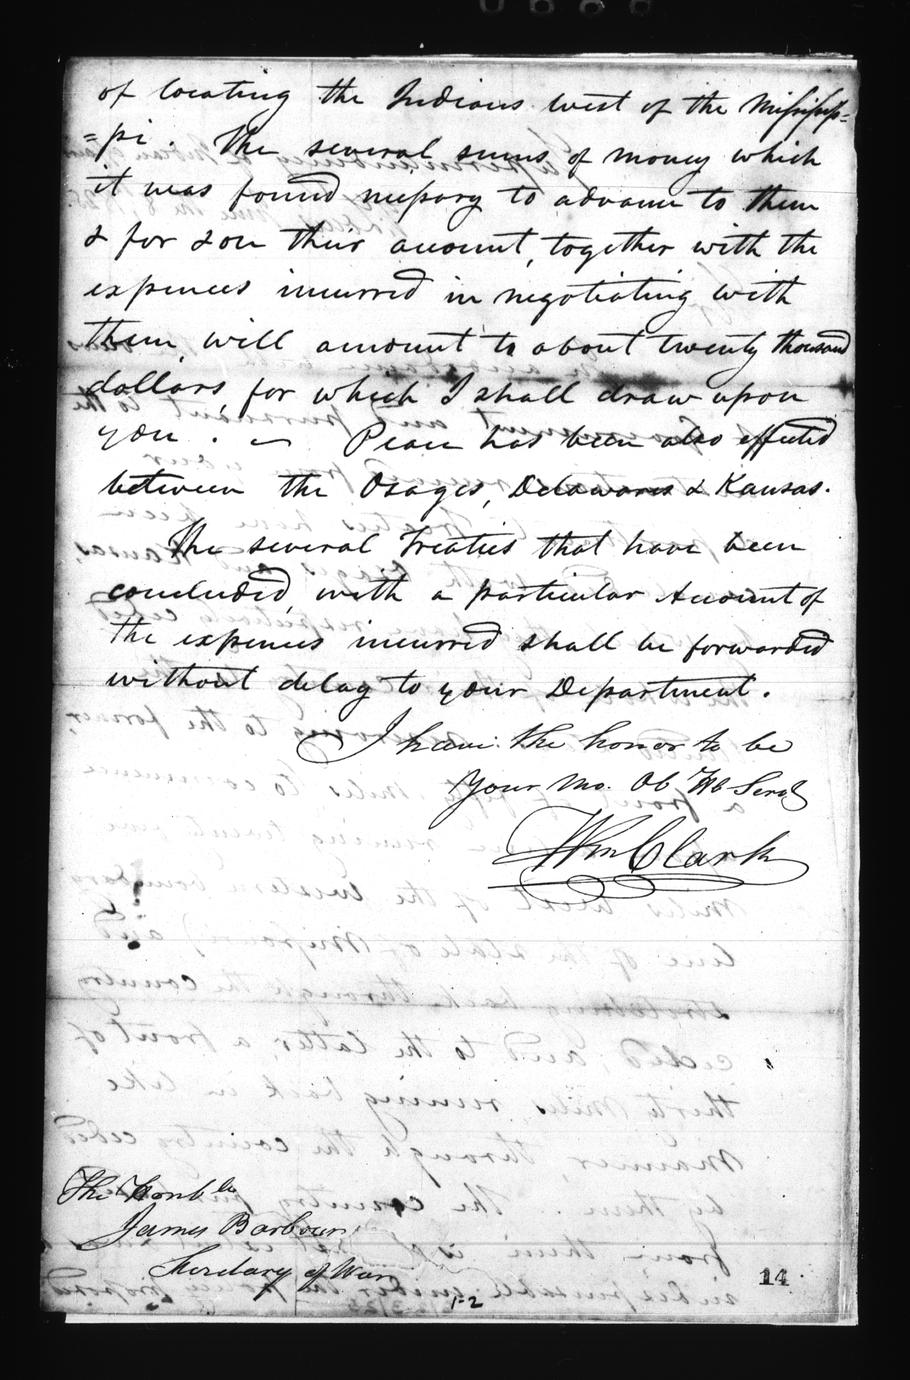 of locating the Indians west of the Missisip=
=pi. The several sums of money which
it was found necessary to advance to them
& for & on their account, together with the
expences incurred in negotiating with
them, will amount to about twenty thousand
dollars, for which I shall draw upon
you. — Peace has been also effected
between the Osages, Delawares & Kansas.
The several Treaties that have been
concluded, with a particular Account of
the expences incurred shall be forwarded
without delay to your Department.
I have the honor to be
Your Mo. Ob Hb Servt
Wm Clark
The Honble
James Barbour
Secretary of War
1-2
14